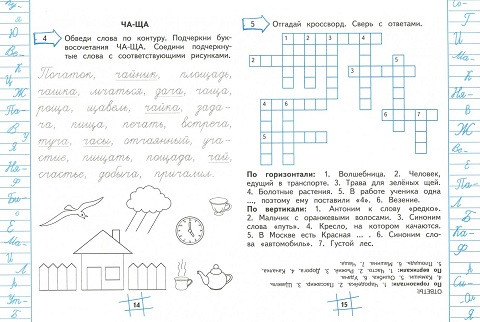 ЧА-ЩА
4 Обведи слова по контуру. Подчеркни бук-
восочетания ЧА-ЩА. Соедини подчеркну-
тые слова с соответствующими рисунками.
Початок, чайник, площадь,
чашка, мчаться, дача, чаща,
роща, щавель, чайка, зада-
ча, пища, печать, встреча,
туча, часы, отчаянный, уча-
стие, пищать, пощада, чай,
счастье, добыча, причалил.
14
5 Отгадай кроссворд. Сверь с ответами.
По горизонтали: 1. Волшебница. 2. Человек,
едущий в транспорте. 3. Трава для зелёных щей.
4. Болотные растения. 5. В работе ученика одна
..., поэтому ему поставили «4». 6. Везение.
По вертикали: 1. Антоним к слову «редко».
2. Мальчик с оранжевыми волосами. 3. Синоним
слова «путь». 4. Кресло, на котором качаются.
5. В Москве есть Красная ... . 6. Синоним сло-
ва «автомобиль». 7. Густой лес.
ОТВЕТЫ:
По горизонтали: 1. Чародейка. 2. Пассажир. 3. Щавель.
4. Камыши. 5. Ошибка. 6. Удача.
По вертикали: 1. Часто. 2. Рыжий. 3. Дорога. 4. Качалка.
5. Площадь. 6. Машина. 7. Чаща.
15